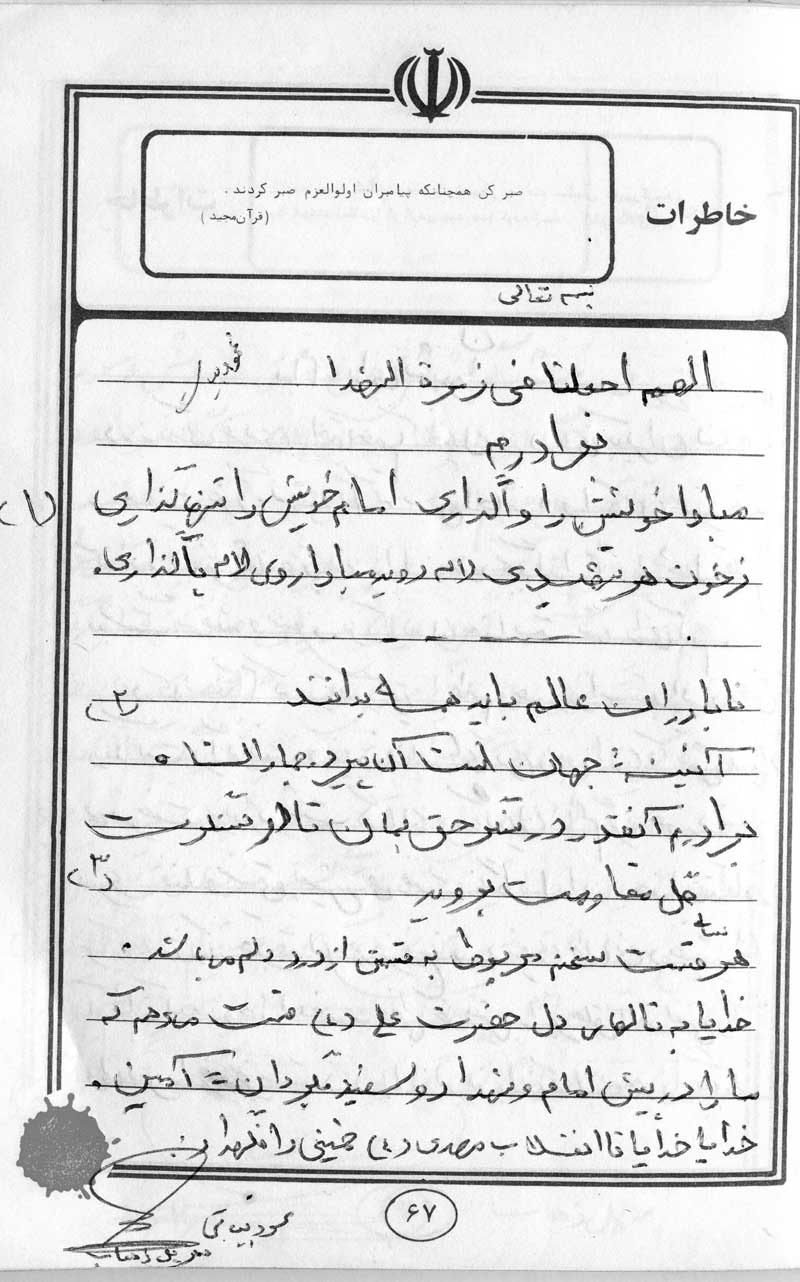 صبر کن همچنانکه پیامبران اولوالعزم صبر کردند.
(قرآن مجید)
خاطرات
بسمه تعالی
الهم اجعلنا فی زمرة الشهدا
برادرم
مبادا خویشتن را واگذاری امام خویش را تنها گذاری (۱)
ز خون هر شهیدی لاله روید مبادا روی لاله پا گذاری.
ناباوران عالم باید همه بدانند (۲)
آئینه جهان است آن پیر جماران
برادرم آنقدر در سنگر حق بمان تا از سنگرت
گل مقاومت بروید (۳)
هر قسمت سخنم مربوط به قسمتی از درد دلم میباشد.
خدایا به ناله‌های دل حضرت علی (ع) قسمت میدهم که
ما را در پیش امام و شهدا روسفید بگردان آمین.
خدایا خدایا تا انقلاب مهدی (ع) خمینی را نگهدار
محمود
۶۷